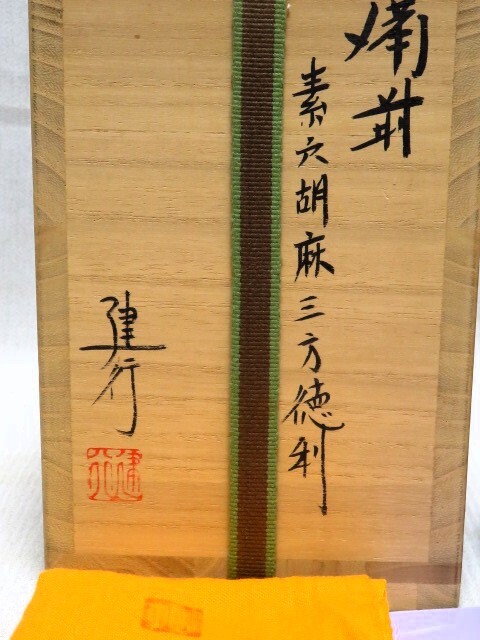 備前
素穴胡麻三方徳利
建行